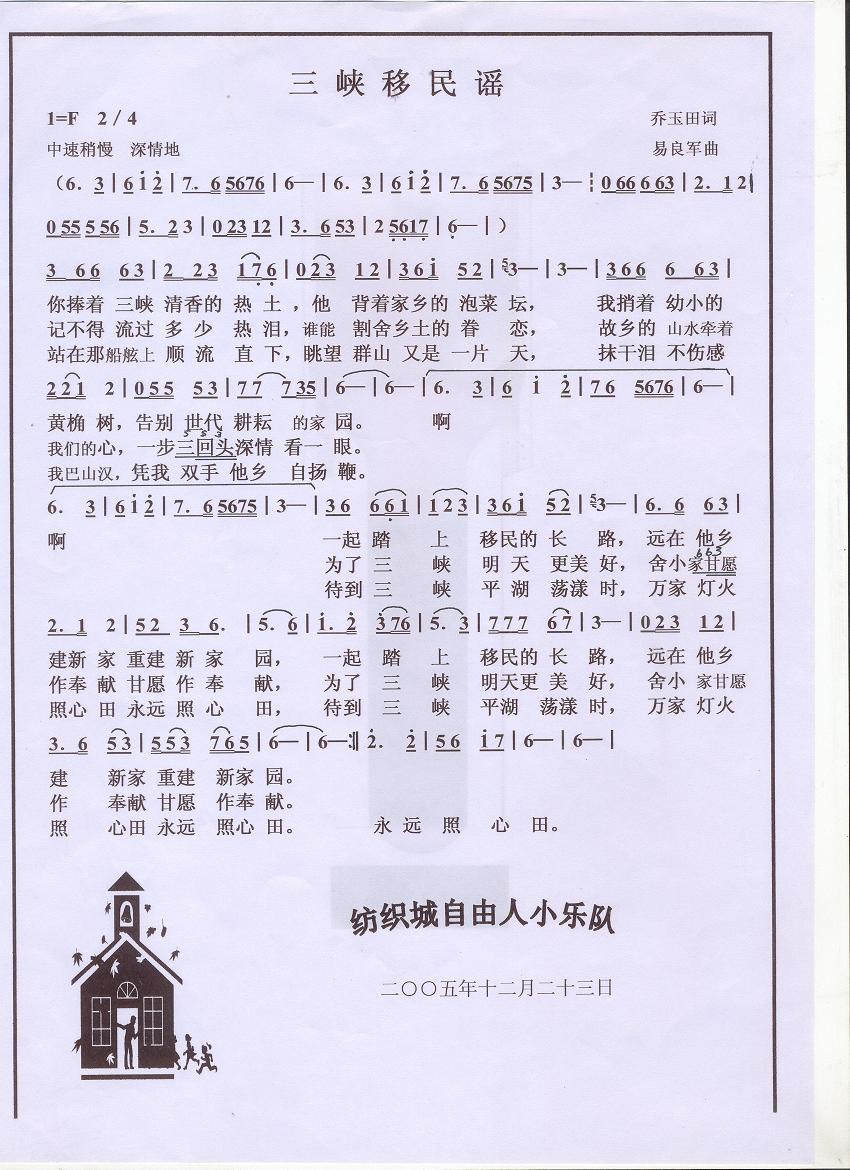 三峡移民谣
1=F 2/4 乔玉田词
中速稍慢 深情地 易良军曲
（6. 3|6 i 2|7. 6 5676|6—|6. 3|6 i 2|7. 6 5675|3—¦0 66 6 63|2. 1 2|
0 55 5 56|5. 2 3|0 23 12|3. 6 53|2 5617|6—|）
3 66 63|2 23 176|0 23 12|36i 52|3—|3—|366 6 63|
你捧着 三峡 清香的 热 土，他 背着家乡的 泡菜 坛， 我捎着 幼小的
记不得 流过 多少 热泪，谁能 割舍乡土的 眷 恋， 故乡的 山水牵着
站在那船舷上 顺流 直下，眺望 群山 又是 一片 天， 抹干泪 不伤感
221 2|0 55 53|77 735|6—|6—|6. 3|6 i 2|76 5676|6—|
黄桷 树，告别 世代 耕耘 的家 园。 啊
5 5 3
我们的心，一步三回头深情 看一 眼。
我巴山汉，凭我 双手 他乡 自扬 鞭。
6. 3|6 i 2|7. 6 5675|3—|36 66i|123|36i 52|3—|6. 6 63|
啊 一起 踏 上 移民的 长 路， 远在 他乡
6 6 3
为了 三 峡 明天 更美 好， 舍小家甘愿
待到 三 峡 平湖 荡漾 时， 万家 灯火
2. 1 2|52 3 6.|5. 6|i. 2 376|5. 3|777 67|3—|023 12|
建新 家 重建 新 家 园， 一起 踏 上 移民的 长 路， 远在 他乡
作奉 献 甘愿 作 奉 献， 为了 三 峡 明天更 美 好， 舍小 家甘愿
照心 田 永远 照 心 田， 待到 三 峡 平湖 荡漾 时， 万家 灯火
3. 6 53|553 765|6—|6—:‖2. 2|56 i7|6—|6—|
建 新家 重建 新家 园。
作 奉献 甘愿 作奉 献。
照 心田 永远 照心 田。 永 远 照 心 田。
纺织城自由人小乐队
二〇〇五年十二月二十三日